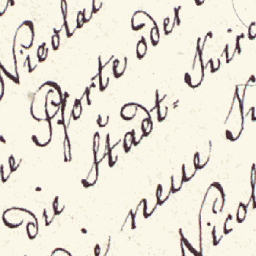 Nicolai
die Pforte oder
die Stadt=Kirc
die neue K
Nicol